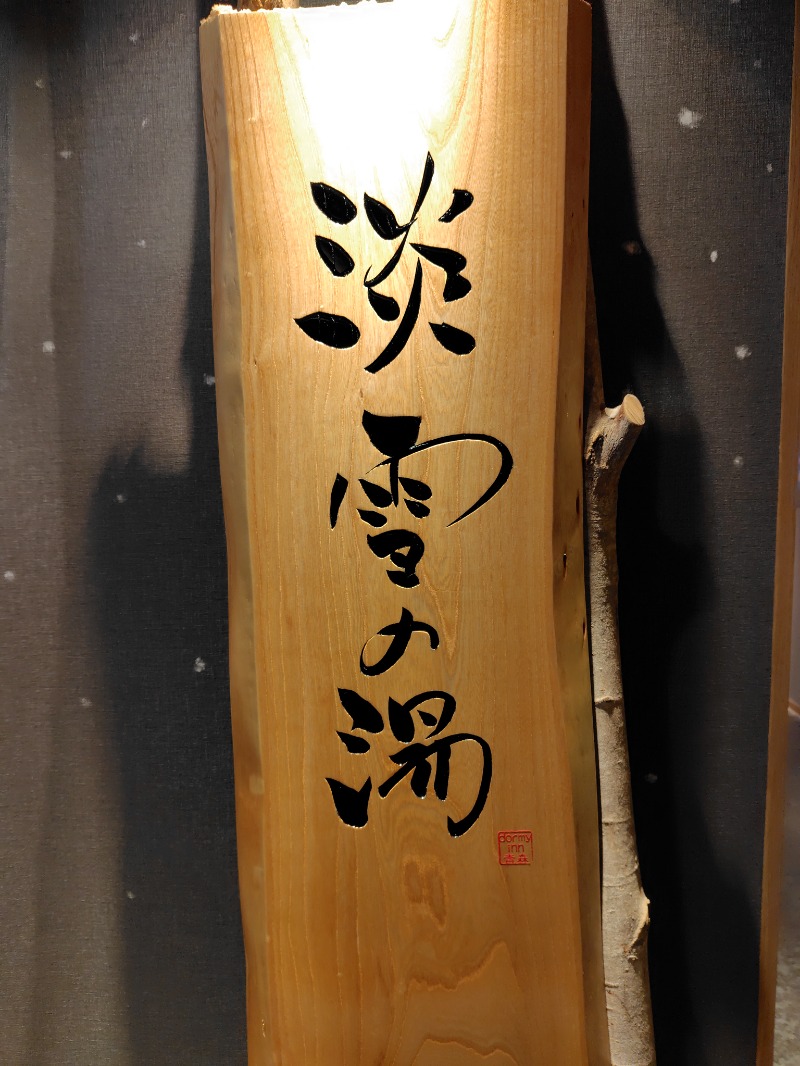 淡雪の湯
dormy
inn
青森